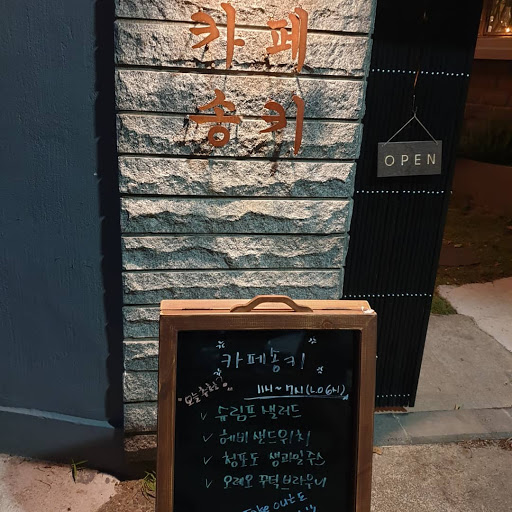 카페
송키
OPEN
카페송키
오늘추천?
11시~7시(L.O 6시)
✓ 슈림프 샐러드
✓ 헤비 샌드위치
✓ 청포도 생과일주스
✓ 오레오 꾸덕브라우니
Take out도